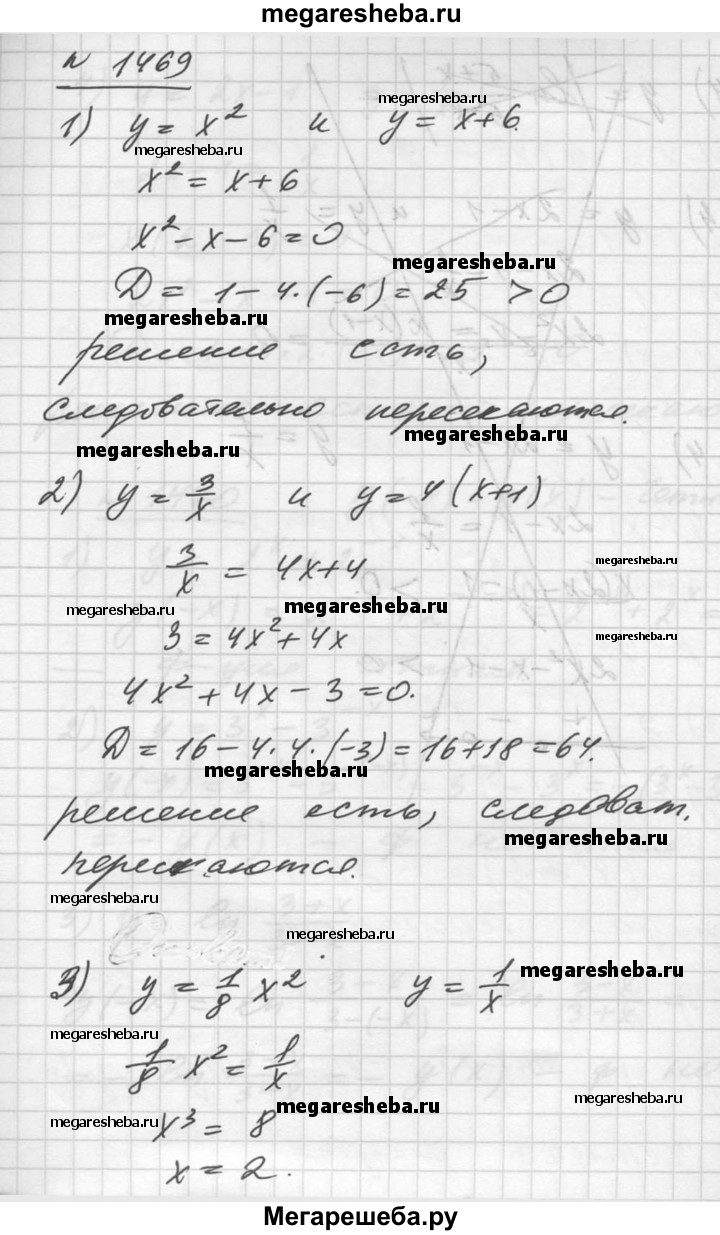 megaresheba.ru
№ 1469
megaresheba.ru
1) y = x² и y = x+6.
megaresheba.ru
x² = x+6
x² - x - 6 = 0
megaresheba.ru
D = 1 - 4·(-6) = 25 > 0
megaresheba.ru
решение есть,
следовательно пересекаются.
megaresheba.ru
megaresheba.ru
2) y = 3/x и y = 4(x+1)
3/x = 4x+4
megaresheba.ru
megaresheba.ru
megaresheba.ru
3 = 4x² + 4x
megaresheba.ru
4x² + 4x - 3 = 0.
D = 16 - 4·4·(-3) = 16+18 = 64.
megaresheba.ru
решение есть, следоват.
megaresheba.ru
пересекаются.
megaresheba.ru
megaresheba.ru
3) y = 1/8 x² y = 1/x
megaresheba.ru
megaresheba.ru
1/8 x² = 1/x
megaresheba.ru
megaresheba.ru
megaresheba.ru
x³ = 8
x = 2.
Мегарешеба.ру